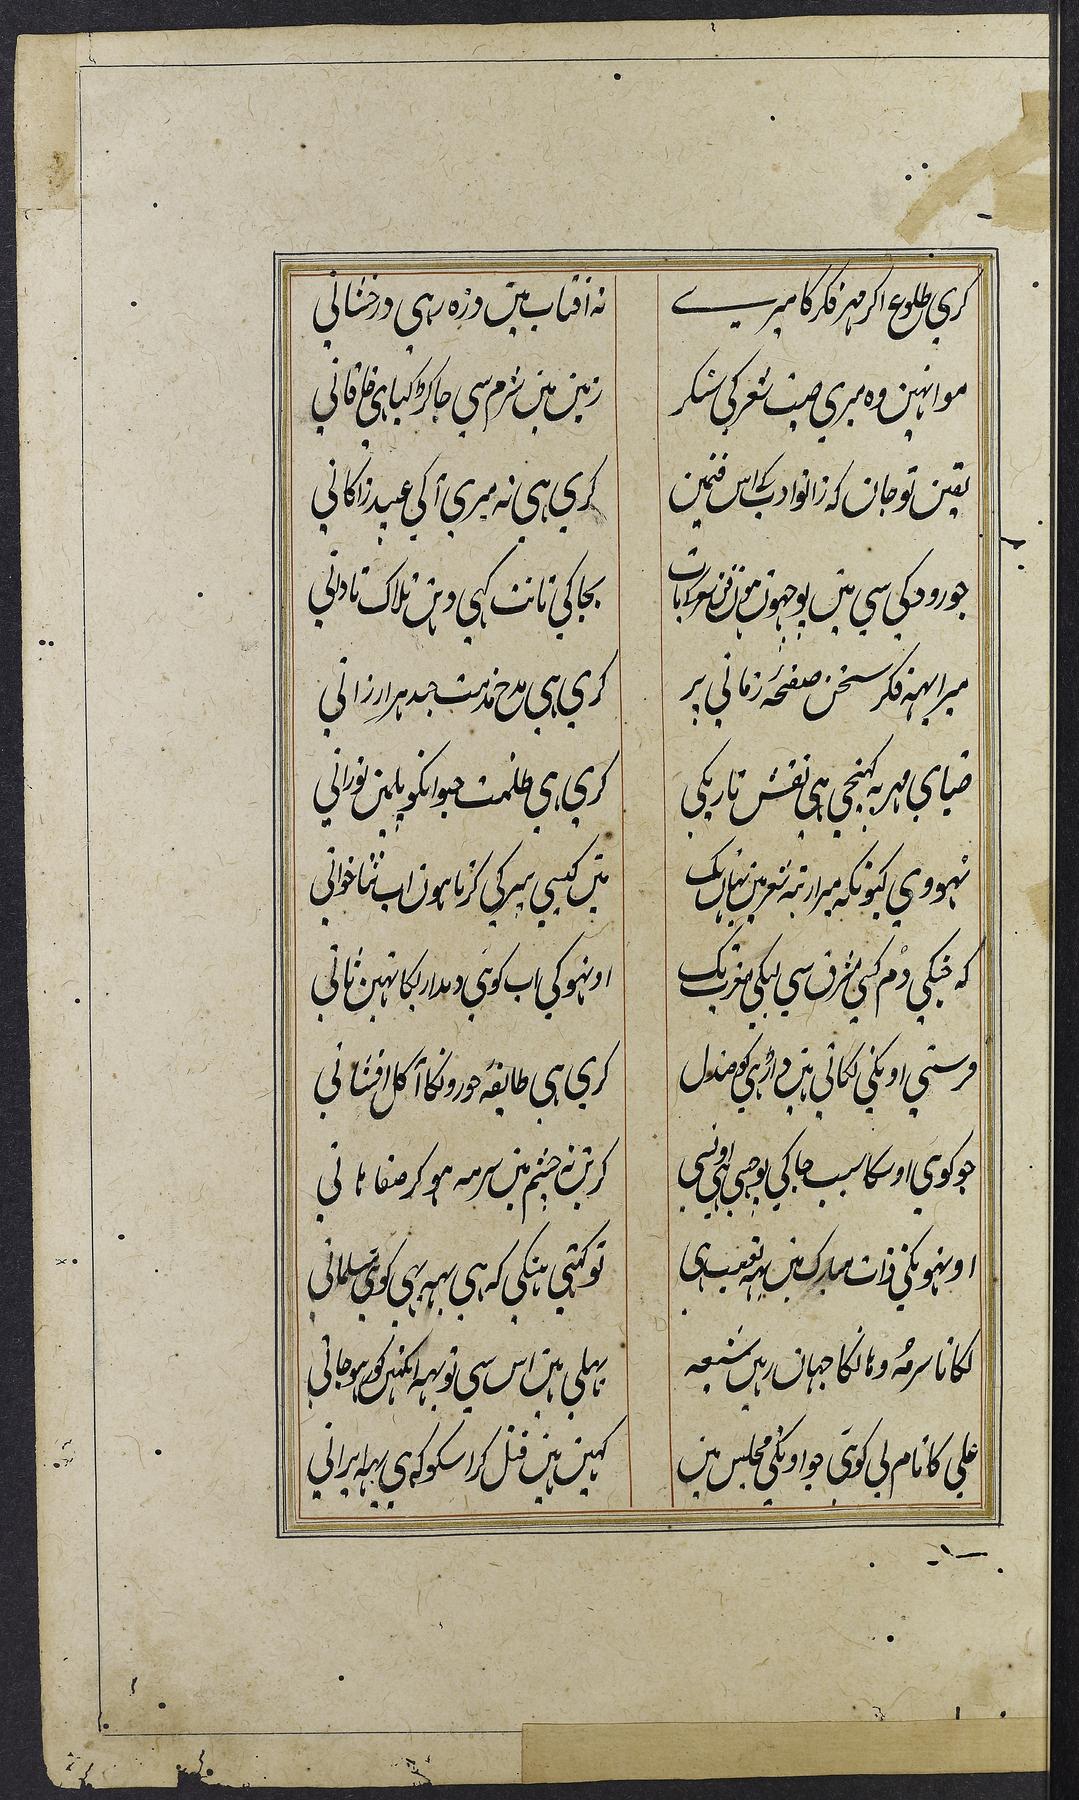 کری طلوع اکر مہر فکر کا میرے
نہ افتاب مین ذرہ رہی درخشانی
موا نہین وہ میری صیت شعر کی سنکر
زمین مین شرم سی جا کڑ کیا ہی خاقانی
یقین تو جان کہ زانو ادب کی اس فنمین
کری ہی تہ میری آ کی عبید زاکانی
جو رودکی سی مین پوچهون
بجا کی تانت کہی دہن تلاک تادانی
میرا یہہ فکر سخن صفحۂ زمانی پر
کری ہی مدح مذمت جد ہر ارزانی
ضیای مہر پہ کہنچی ہی نقش تاریکی
کری ہی ظلمت حیوانکو پلمین نورانی
نہووی کیونکہ میرا رتبہ شعر مین نہان تک
مین کیسی پیر کی کرتا ہون اب ثنا خوانی
کہ جنکی دم کسی مشرق سی لیکی مغرب تک
اونہو کی اب کوئی دمدار کا نہین ثانی
فرستی اونکی لکاتی ہین داڑہی کو صندل
کری ہی طایفہ حورونکا آ کل افشانی
جو کوئی اوسکا سبب جا کی پوچهی ہی اونسی
کرین نہ چشم مین سرمہ ہو کر صفاہانی
اونہونکی ذات مبارک مین یہہ تعصب ہی
تو کہتی ہینکی کہ ہی یہہ بہی کوئی مسلمانی
لکانا سرمہ وہانکا جہان رہین شیعہ
بہلی ہین اس سی تو یہہ انکہین کور ہو جانی
علی کا نام لی کوئی جو اونکی مجلس مین
کہین ہین قتل کرا سکو کہ ہی یہہ ایرانی